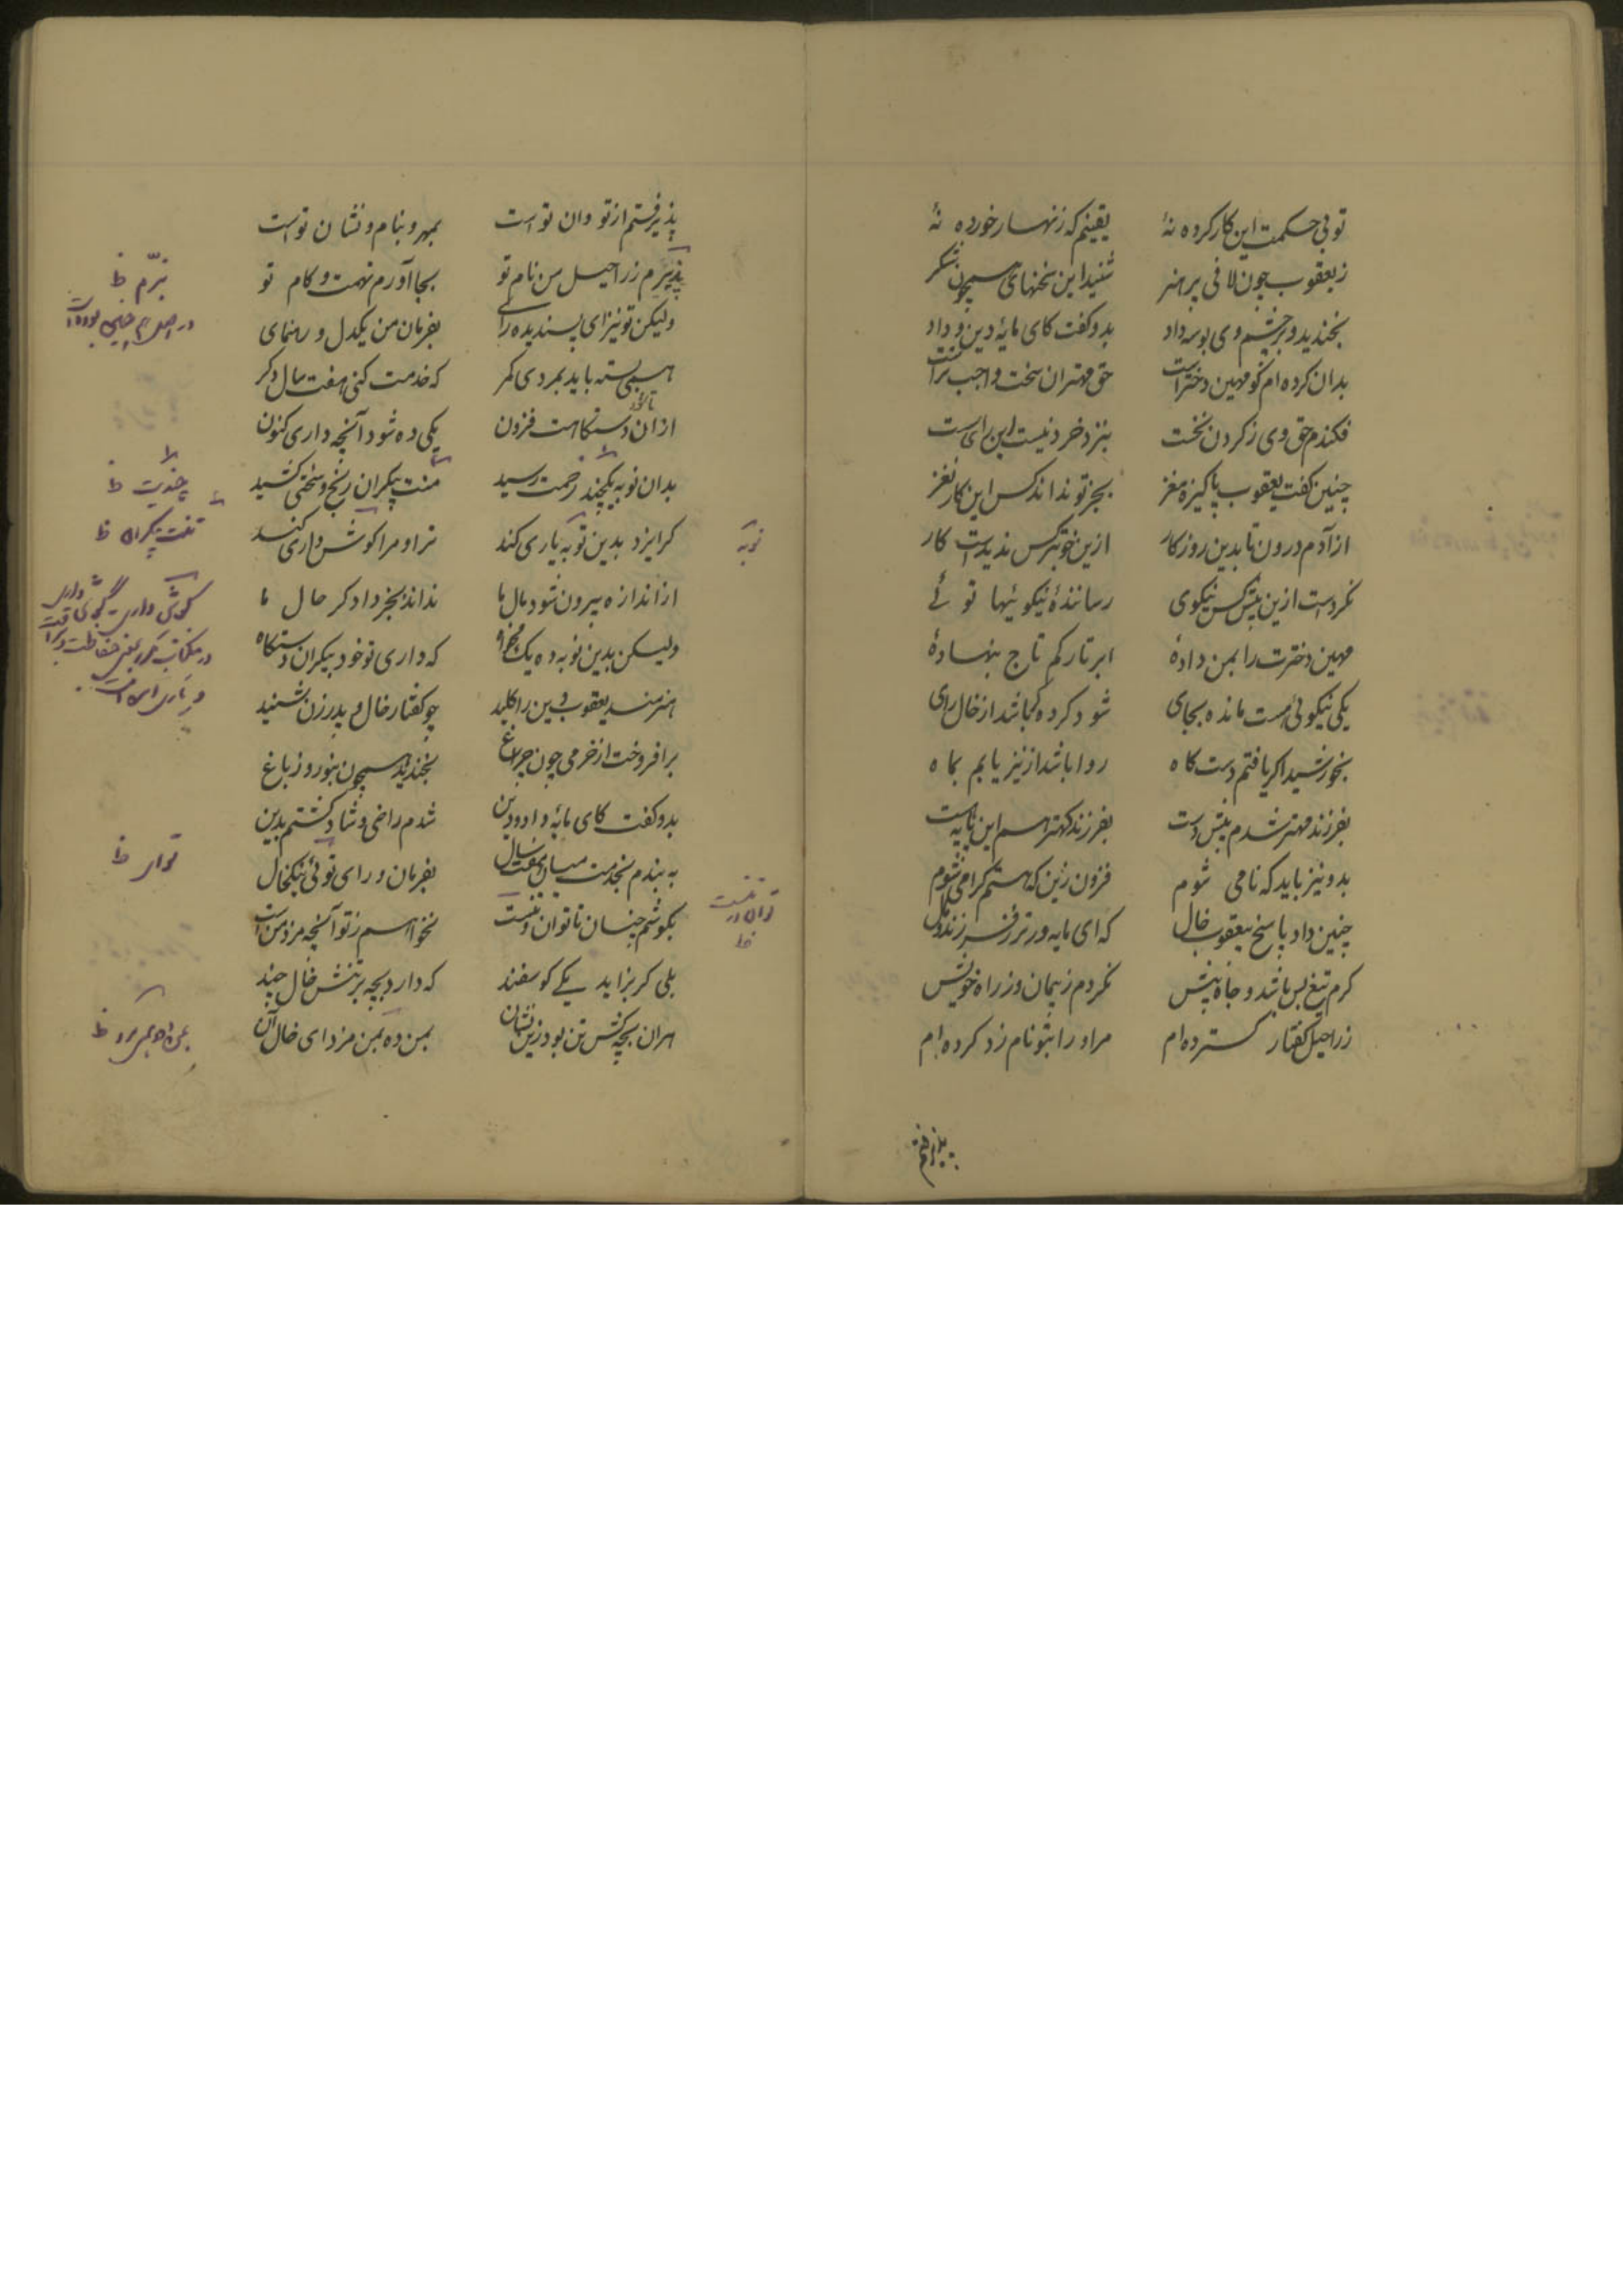 تو بی حکمت این کار کرده نهٔ یقینم که زنهار خورده نهٔ
ز یعقوب چون لافی پر هنر شنید این سخنهای همچون شکر
بخندید و بر چشم وی بوسه داد بدو گفت کای مایهٔ دین و داد
بدان کرده ام کو مهین دخترست حق مهتران سخت واجب ترست
فکندم حق وی ز کردن نخست بنزد خرد نیست این رای سست
چنین گفت یعقوب پاکیزه مغز بجز تو نداند کس این کار نغز
از آدم درون تا بدین روزکار ازین خوبتر کس ندیدست کار
نکردست ازین پیش کس نیکوی رسانندهٔ نیکوئیها توئے
مهین دخترت را بمن دادهٔ ابر تارکم تاج بنهادهٔ
یکی نیکوئی هست مانده بجای شود کرده کر باشد از خال رای
بخورشید اکر یافتم دست کاه روا باشد ار نیز یابم بماه
بفرزند مهتر شدم پیش دست بفرزند کهتر هم این پایه هست
بدو نیز باید که نامی شوم فزون زین که هستم کرامی شوم
چنین داد پاسخ بیعقوب خال که ای مایه ور تر ز فرزند و مال
کرم تیغ پس باشد و جاه پیش نکردم ز پیمان و ز راه خویش
ز راحیل گفتار گسترده ام مر او را بتو نام زد کرده ام
پذیرفتم
پذیرفتم از تو وان تو است بمهر و بنام و نشان تو است
پذیرم ز راحیل من نام تو بجا آورم نهمت و کام تو
ولیکن تو نیز ای پسندیده رای بفرمان من یکدل و رهنمای
همی بسته باید بمردی کمر که خدمت کنی هفت سال دکر
از ان دستکاهت فزون یکی ده شود آنچه داری کنون
بدان نوبه یکچند زحمت رسید منت بیکران رنج و سختی کشید
کر ایزد بدین نوبه یاری کند ترا و مرا کوش داری کند
از اندازه بیرون شود مال ما نداند بجز دادکر حال ما
ولیکن بدین نوبه ده یک بخواه که داری تو خود بیکران دستکاه
هنرمند یعقوب دین را کلید چو کفتار خال و پدر زن شنید
برافروخت از خرمی چون چراغ بخندید همچون بنوروز باغ
بدو کفت کای مایهٔ داد و دین شدم راضی و شاد کشتم بدین
به بندم بخدمت میان هفت سال بفرمان و رای تو ئی نیکخال
بکوشم چنان تا توان منست نخواهم ز تو آنچه مزد منست
بلی کر بزاید یکے کوسفند که دارد بچه بر تنش خال چند
هر ان بچه کش تن بود زین نشان بمن ده بمن مزد ای خال آن